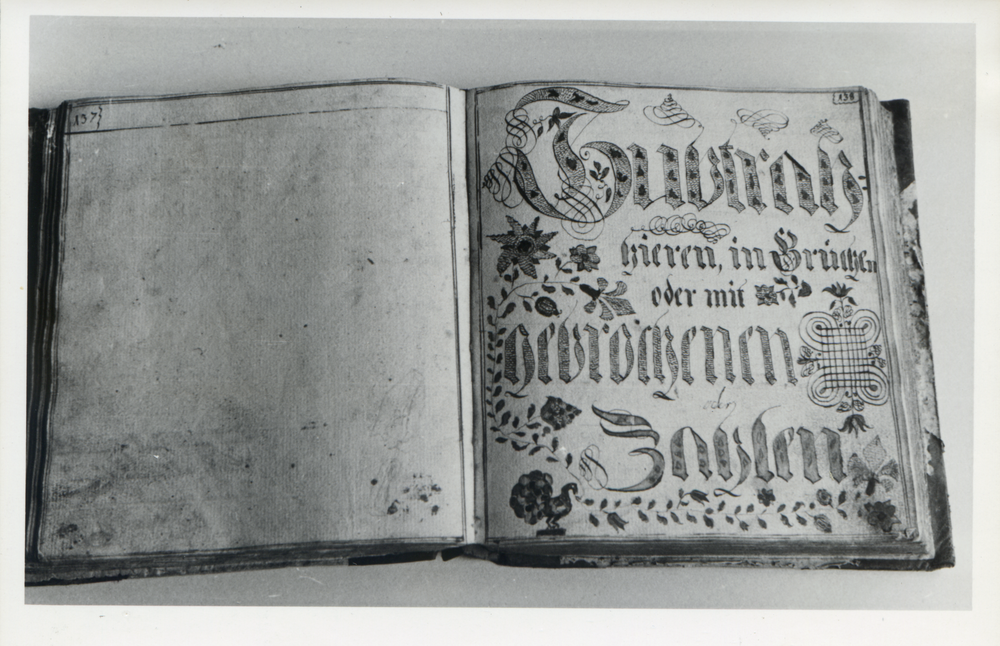 137
138
Subtrah=
hieren, in Brüchen
oder mit
gebrochenen
oder
Zahlen